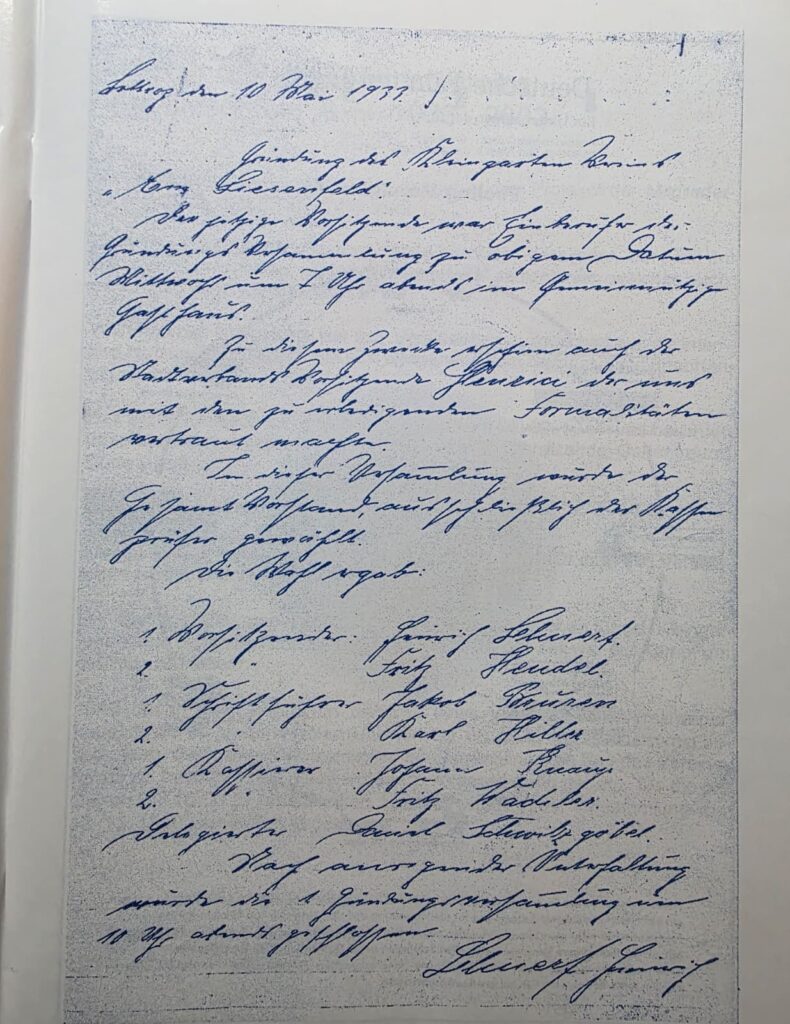 Bottrop den 10 Mai 1933.
Gründung des Kleingarten Vereins
„ Am Liesenfeld"
Der jetzige Vorsitzende war Einberufer der
Gründungs Versammlung zu obigem Datum
Mittwoch um 7 Uhr abends im Gemeinnützige
Gasthaus.
Zu diesem Zwecke erschien auch der
Stadtverbands Vorsitzende Henrici der uns
mit den zu erledigenden Formalitäten
vertraut machte.
In dieser Versammlung wurde der
Gesamt Vorstand, ausschließlich der Kassen
prüfer gewählt.
Die Wahl ergab:
1. Vorsitzender: Heinrich Lehnert.
2. " Fritz Hendel.
1. Schriftführer Jakob
2. " Karl Hiller
1. Kassierer Johann Knaup
2. " Fritz Wächter.
Delegierter Daniel Schwitzgöbel.
Nach anregender Unterhaltung
wurde die 1 Gründungsversammlung um
10 Uhr abends geschlossen
Lehnert Heinrich